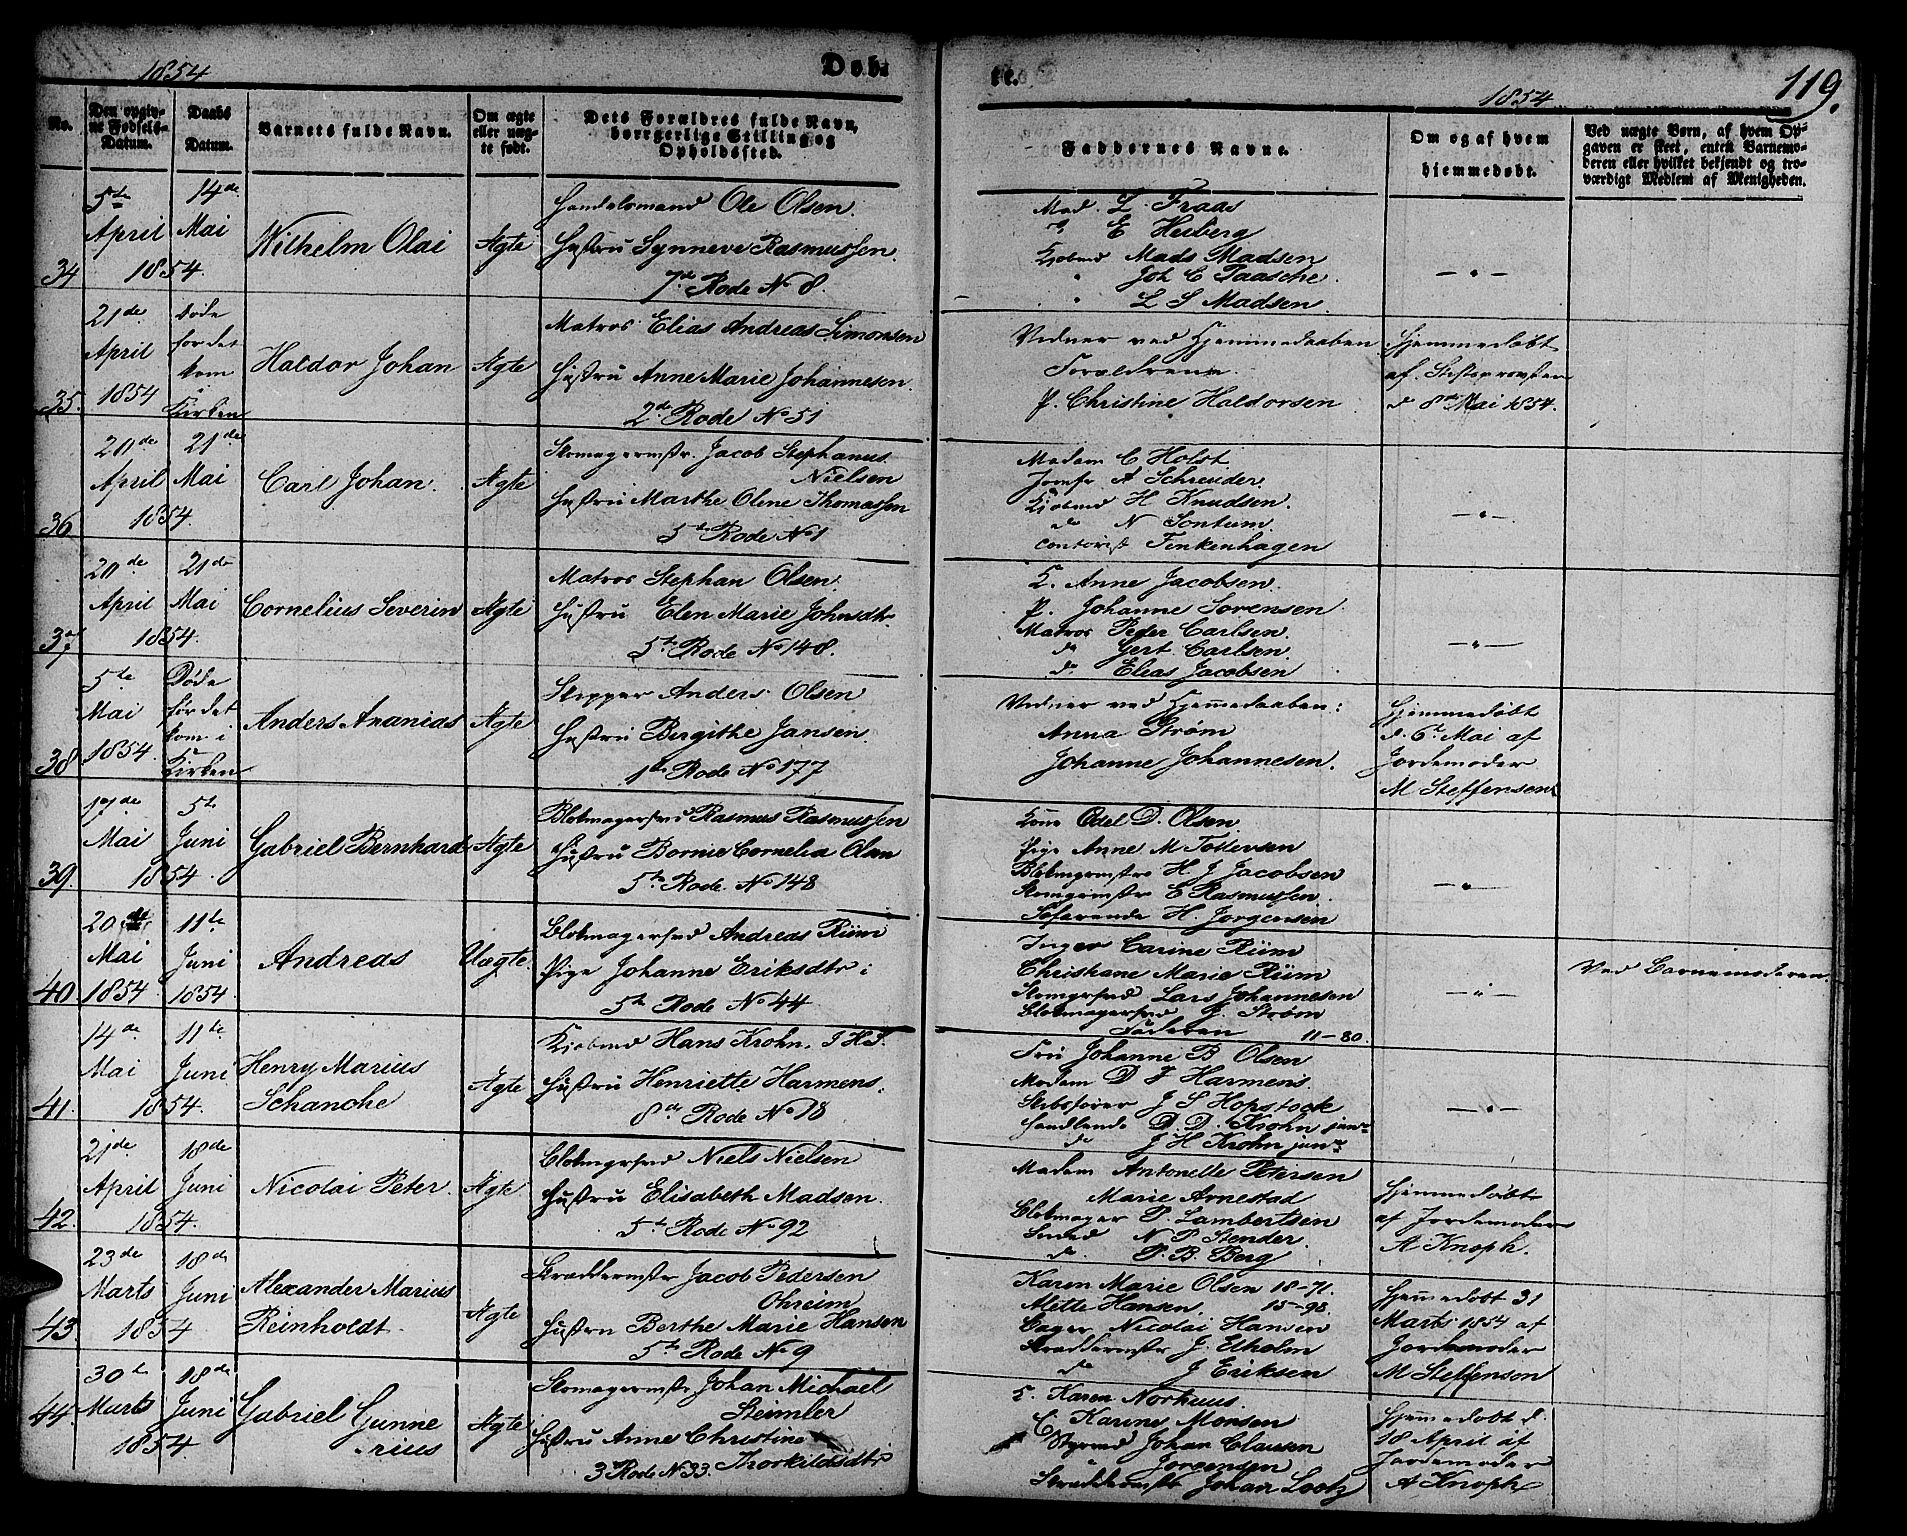 1854
Døb-
te.
1854
119.
No.
Den opgiv-
ne Fødsels-
Datum.
Daabs
Datum.
Barnets fulde Navn.
Om ægte
eller uæg-
te født.
Dets Forældres fulde Navn,
borgerlige Stilling og
Opholdssted.
Faddernes Navne.
Om og af hvem
hjemmedøbt.
Ved uægte Børn, af hvem Op-
gaven er skeet, enten Barnemo-
deren eller hvilket bekjendt og tro-
værdigt Medlem af Menigheden.
34
5te
April
1854.
14de
Mai
Wilhelm Olai
Ægte
Handelsmand Ole Olsen.
Hustru Synneve Rasmussen
7de Rode No 8.
Mad. L. Fraas
E Heiberg
Kjøbmd Mads Madsen
" Joh C Paasche.
" L S Madsen.
— " —
35.
21de
April
1854
døde
før det
kom
i
Kirken
Haldor Johan
Ægte
Matros Elias Andreas Simonsen
Hustru Anne Marie Johannesen
2de Rode No 51
Vidner ved Hjemmedaaben
Forældrene.
P. Christine Haldorsen
Hjemmedøbt
af Stiftsprovsten
d 8de Mai 1854.
36
20de
April
1854.
21de
Mai
Carl Johan.
Ægte
Skomagermstr. Jacob Stephanus
Nielsen
Hustru Marthe Oline Thomassen
5te Rode No 1
Madam C Holst
Jomfr A Schreuder.
Kjøbmd H Knudsen.
do N Sontum.
Contorist Finkenhagen
— " —
37
20de
April
1854.
21de
Mai
Cornelius Severin
Ægte
Matros Stephan Olsen.
Hustru Elen Marie Johnsdtr
5te Rode No 148.
K. Anne Jacobsen.
P. Johanne Sorensen
Matros Peder Carlsen.
do Gert Carlsen.
do Elias Jacobsen
— " —
38
5te
Mai
1854.
Døde
før det
kom i
Kirken
Anders Ananias
Ægte
Skipper Anders Olsen
Hustru Birgithe Jansen.
1te Rode No 177
Vidner ved Hjemmedaaben:
Anna Strøm
Johanne Johannesen.
Hjemmedøbt
d. 6te Mai af
Jordemoder
M Steffensen
39.
17de
Mai
1854.
5te
Juni
Gabriel Bernhard
Ægte
Blokmagersvd Rasmus Rasmussen
Hustru Bornie Cornelia Olsen
5te Rode. No 148
Kone Odel D. Olsen.
Pige Anne M Tollevsen
Blokmgrmstr H J Jacobsen
Skomgrmstr C Rasmussen.
Søfarende H. Jorgensen
— " —
40
20de
Mai
1854
11te
Juni
1854.
Andreas
Uægte.
Blokmagersvd Andreas Riim
Pige Johanne Eriksdtr i
5te Rode No 44
Inger Carine Riim
Christiane Marie Riim
Skomgrsvd Lars Johannesen
Blokmagersvd J. Strøm
Faderen 11-80.
— " —
Ved Barnemoderen.
41.
14de
Mai
1854.
11te
Juni
Henry Marius
Schanche
Ægte
Kjøbmd Hans Krohn. J H S.
Hustru Henriette Harmens.
8de Rode No 18
Fru Johanne B Olsen
Madam D J Harmens.
Skibsfører J S Hopstock
Handlende D. D. Krohn junr
do J H Krohn junr
— " —
42.
21de
April
1854.
18de
Juni
Nicolai Peter.
Ægte
Blokmgrsvd Niels Nielsen
Hustru Elisabeth Madsen.
5te Rode No 92
Madam Antonette Petersen
Marie Arnestad
Blokmager P. Lambertsen
Smed N P Stender.
do P. B. Berg
Hjemmedøbt
af Jordemoder
A Knoph.
43
23de
Marts
1854
18de
Juni
Alexander Marius
Reinholdt.
Ægte
Skræddermstr Jacob Pedersen
Ohreim
Hustru Berthe Marie Hansen
5te Rode No 9
Karen Marie Olsen 18-71.
Mette Hansen. 15-98.
Bager Nicolai Hansen
Skræddermstr J. Elholm
do J Eriksen
Hjemedøbt 31
Marts 1854 af
Jordemoder
M Steffenson
44.
30te
Marts
1854
18de
Juni
Gabriel Gunne
-rius
Ægte
Skomagermstr Johan Michael
Steimler
Hustru Anne Christine
3 Rode No 33. Thorkildsdtr
K. Karen Norhuus.
C. Karine Monsen
Styrmd Johan Clausen
Jorgensen
Skræddermstr Johan Lootz
Hjemedøbt d.
18 April af
Jordemoder
A Knoph